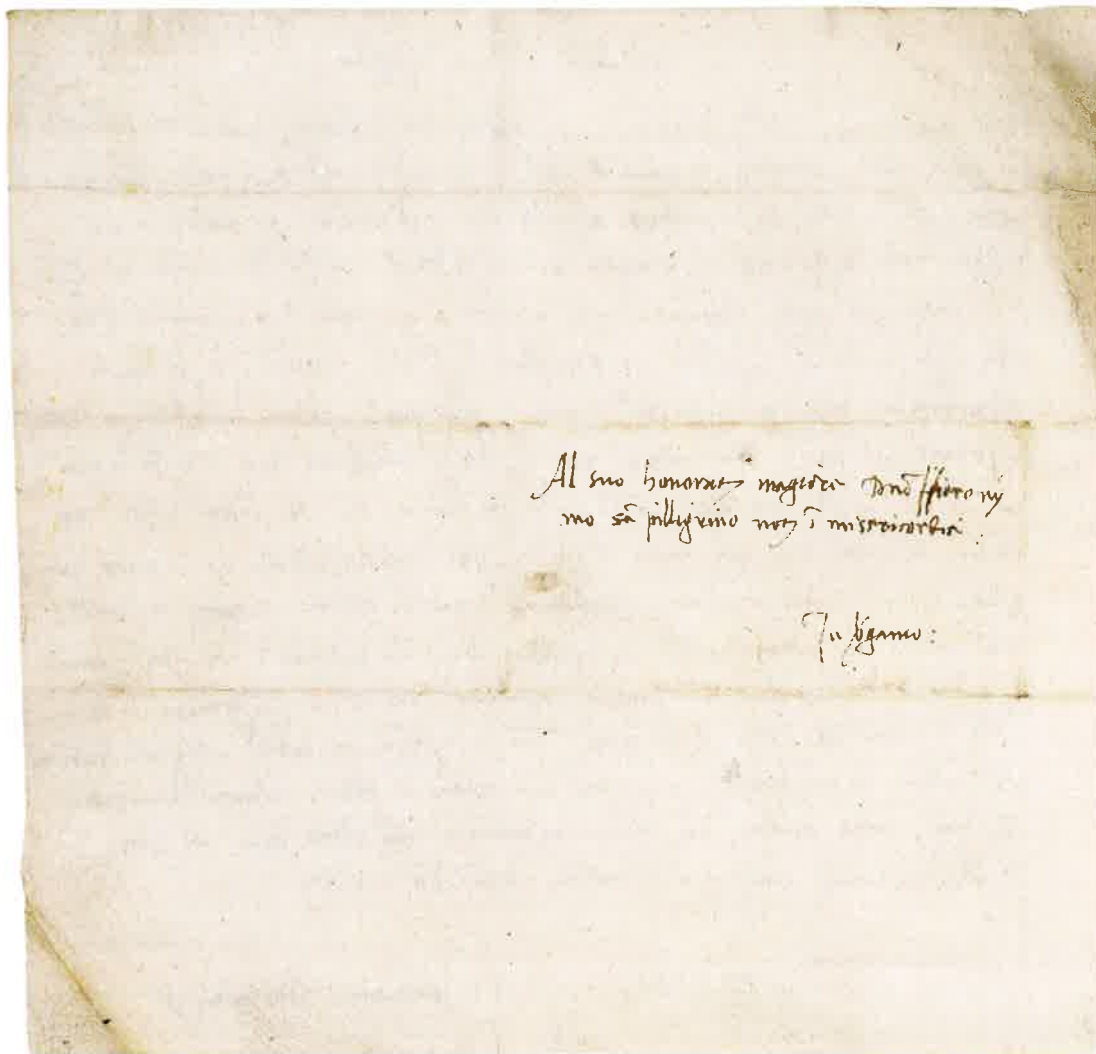 Al suo honorat magiore Dnō Hierony
mo sā pilligrino not ī misericordia
In b̄gamo: